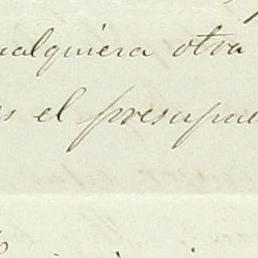 ualquiera otra
s el presupue